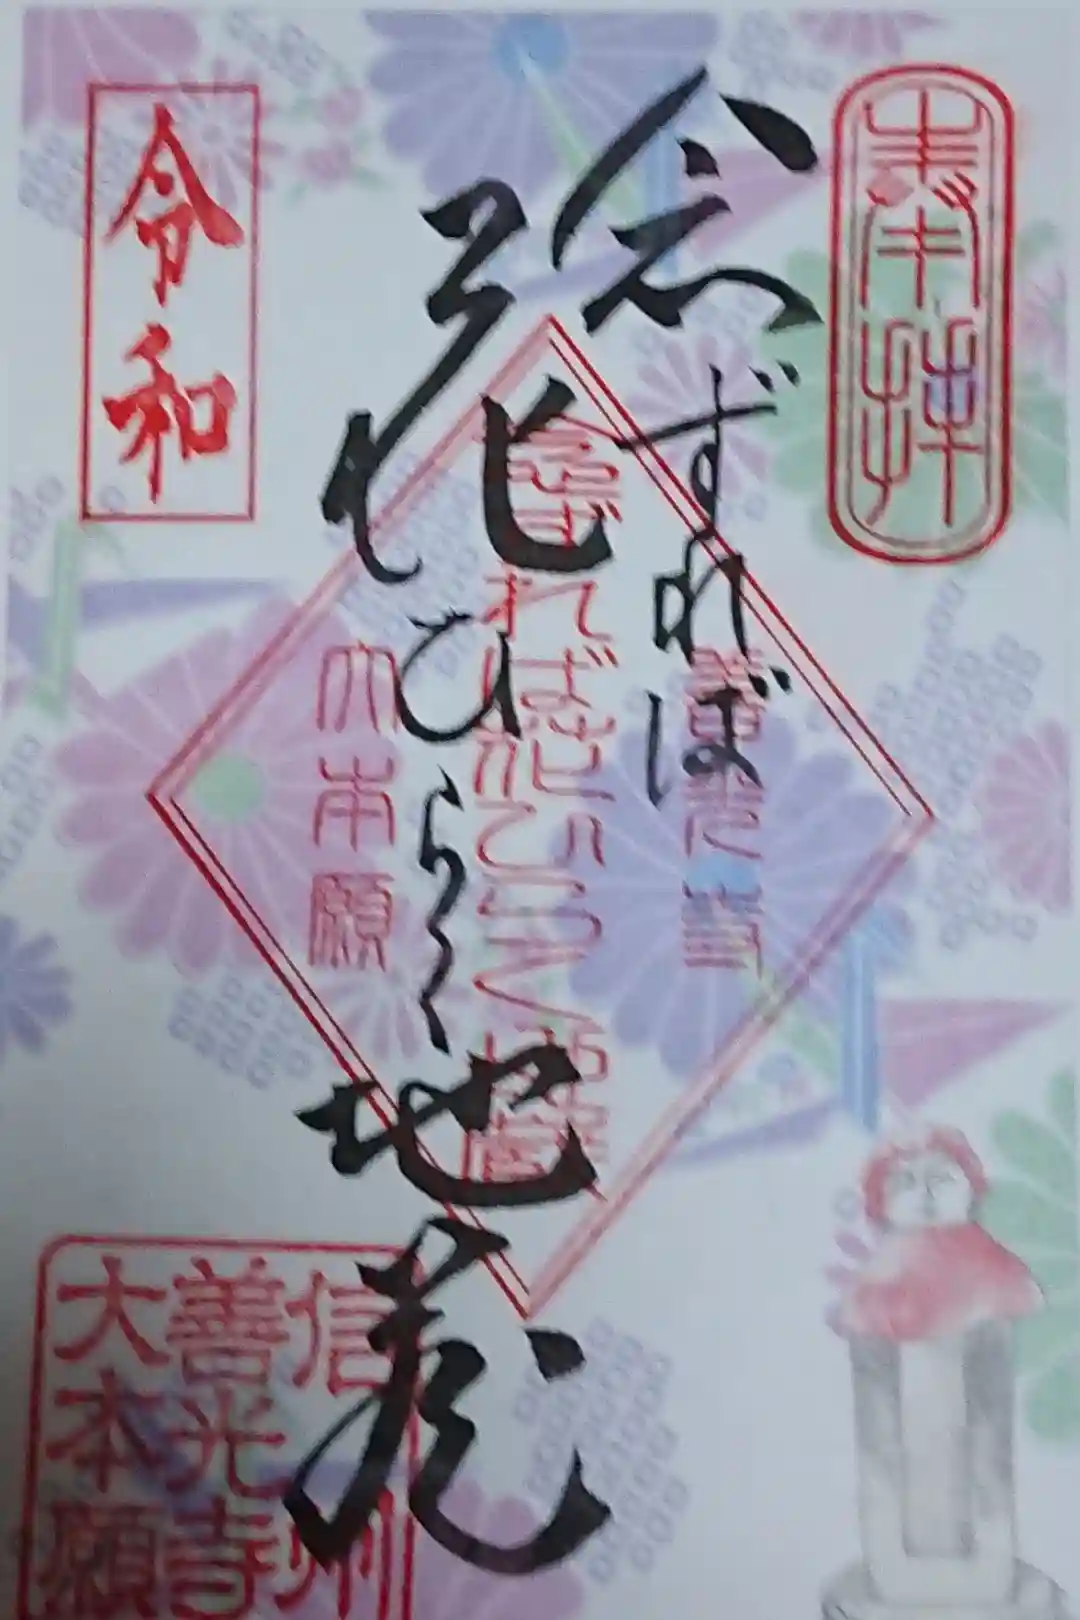 奉拝
念ずれば
花ひらく地蔵
善光寺
念ずれば花ひらく地蔵
大本願
令和
信州
善光寺
大本願